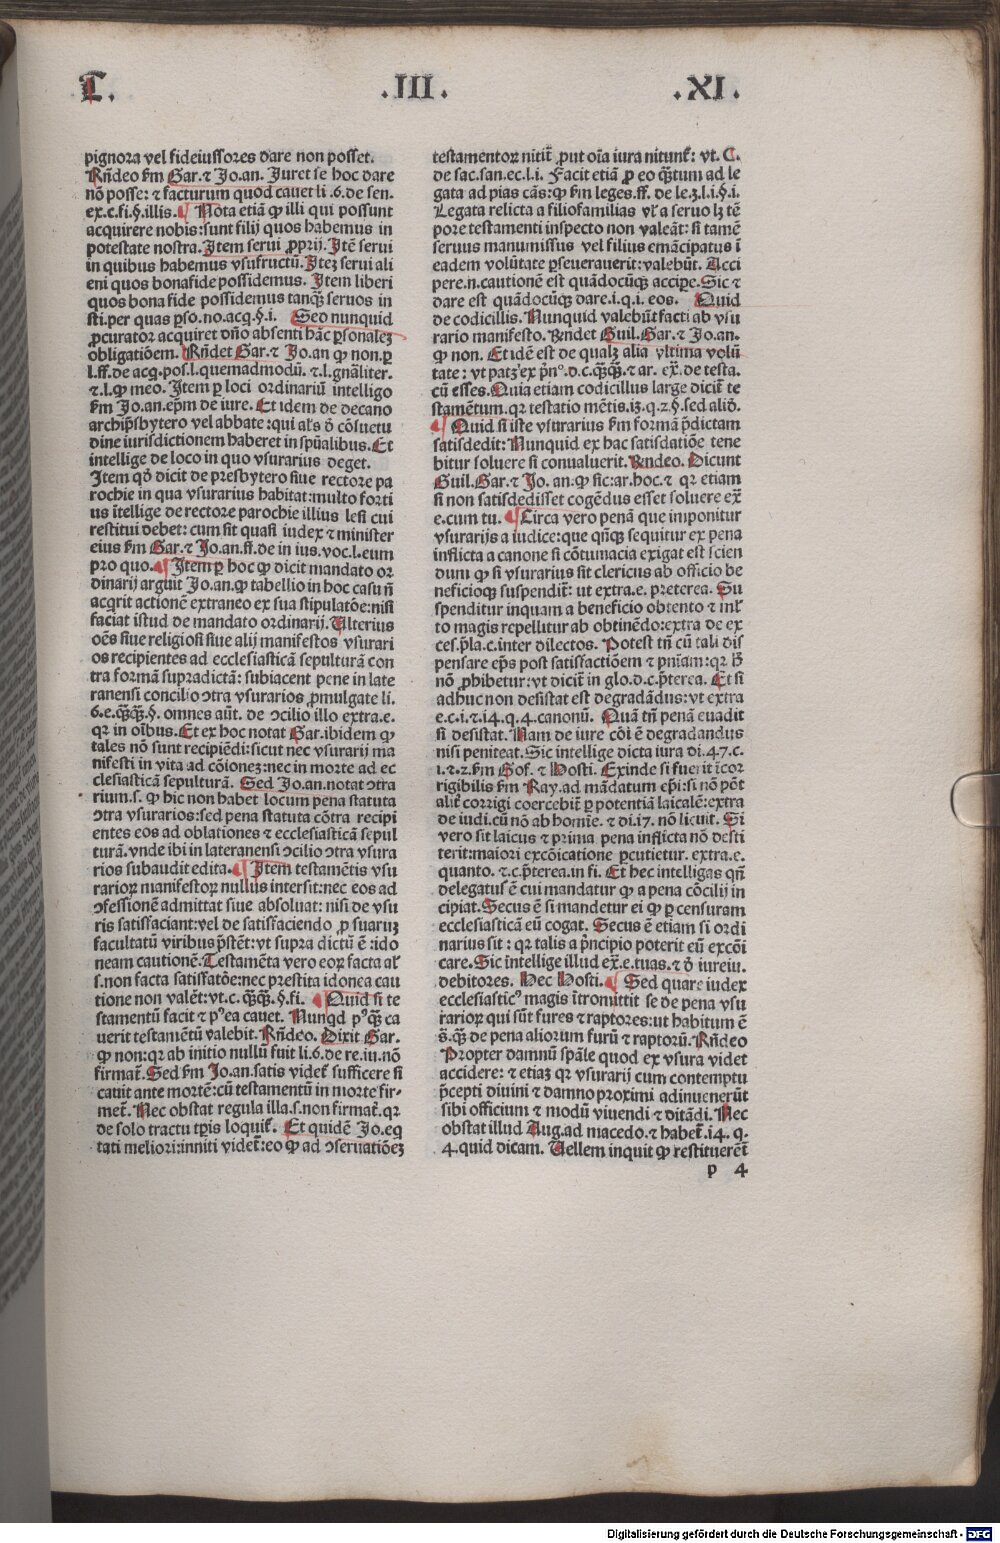 T. .III. .XI.
pignora vel fideiussores dare non posset.
Rñdeo ẜm Gar.⁊ Jo.an. Juret se hoc dare
nō posse: ⁊ facturum quod cauet li .6. de sen.
ex.c.fi.§.illis. ¶ Nota etiā ꝙ illi qui possunt
acquirere nobis: sunt filij quos habemus in
potestate nostra. Item serui ꝓprij. Itē serui
in quibus habemus vsufructū. Itez serui ali
eni quos bonafide possidemus. Item liberi
quos bona fide possidemus tanq̃ seruos in
sti.per quas ꝑso.no.acq.§.i. Sed nunquid
ꝓcurator acquiret dño absenti hāc ꝑsonalez
obligatiōem. Rñdet Gar.⁊ Jo.an ꝙ non.ꝑ
l.ff.de acq.pos.l.quemadmodū. ⁊.l.gnāliter.
⁊.l.ꝙ meo. Item ꝑ loci ordinariū intelligo
ẜm Jo.an.epm̄ de iure. Et idem de decano
archip̄sbytero vel abbate: qui al's ō cōsuetu
dine iurisdictionem haberet in spūalibus. Et
intellige de loco in quo vsurarius deget.
Item qō dicit de presbytero siue rectore pa
rochie in qua vsurarius habitat: multo forti
us ītellige de rectore parochie illius lesi cui
restitui debet: cum sit quasi iudex ⁊ minister
eius ẜm Gar.⁊ Jo.an.ff.de in ius.voc.l.eum
pro quo. ¶ Item ꝑ hoc ꝙ dicit mandato or
dinarij arguit Jo.an.ꝙ tabellio in hoc casu ñ
acq̄rit actionē extraneo ex sua stipulatōe: nisi
faciat istud de mandato ordinarij. Ulterius
oēs siue religiosi siue alij manifestos vsurari
os recipientes ad ecclesiasticā sepulturā con
tra formā supradictā: subiacent pene in late
ranensi concilio ↄtra vsurarios ꝓmulgate li.
6.e.q̄q̄.§. omnes aūt. de ↄcilio illo extra.e.
qr in oībus. Et ex hoc notat Gar.ibidem ꝙ
tales nō sunt recipiēdi: sicut nec vsurarij ma
nifesti in vita ad cōionez: nec in morte ad ec
clesiasticā sepulturā. Sed Jo.an.notat ↄtra
rium.s. ꝙ hic non habet locum pena statuta
ↄtra vsurarios: sed pena statuta cōtra recipi
entes eos ad oblationes ⁊ ecclesiasticā sepul
turā. vnde ibi in lateranensi ↄcilio ↄtra vsura
rios subaudit edita. ¶ Item testamētis vsu
rarioꝝ manifestoꝝ nullus intersit: nec eos ad
ↄfessionē admittat siue absoluat: nisi de vsu
ris satisfaciant: vel de satisfaciendo ꝓ suaruz
facultatū viribus p̄stēt: vt supra dictū ē: ido
neam cautionē. Testamēta vero eoꝝ facta al'
s.non facta satisfatōe: nec prestita idonea cau
tione non valēt: vt.c. q̄q̄.§.fi. ¶ Quid si te
stamentū facit ⁊ pꝰea cauet. Nunqd pꝰq̄ ca
uerit testamētū valebit. Rñdeo. Dixit Gar.
ꝙ non: qr ab initio nullū fuit li.6.de re.iu.nō
firmat̃. Sed ẜm Jo.an.satis videt̃ sufficere si
cauit ante mortē: cū testamentū in morte fir-
met̃. Nec obstat regula illa.s.non firmat̃.qr
de solo tractu tp̄is loquit̃. Et quidē Jo.eq
tati meliori: inniti videt̃: eo ꝙ ad ↄseruatiōez
testamentoꝝ nitit̃ ꝓut oīa iura nitunt̃: vt. C.
de sac.san.ec.l.i. Facit etiā ꝓ eo q̄tum ad le
gata ad pias cās: ꝙ ẜm leges.ff. de le.3.l.i.§.i.
Legata relicta a filiofamilias vl' a seruo lꝫ tē
pore testamenti inspecto non valeāt: si tamē
seruus manumissus vel filius emācipatus ī
eadem volūtate ꝑseuerauerit: valebūt. Acci
pere.n.cautionē est quādocūq̧ accipe. Sic ⁊
dare est quādocūq̧ dare.i.q.i. eos. Quid
de codicillis. Nunquid valebūt facti ab vsu
rario manifesto. Rñdet Guil.Gar.⁊ Jo.an.
ꝙ non. Et idē est de qualꝫ alia vltima volū
tate: vt patꝫ ex p̄nº.d.c.q̄q̄.⁊ ar. ex̄.de testa.
cū esses. Quia etiam codicillus large dicit̃ te
stamētum.qr testatio mētis.iꝫ.q.2.§.sed aliō.
¶ Quid si iste vsurarius ẜm formā p̄dictam
satisdedit: Nunquid ex hac satisdatiōe tene
bitur soluere si conualuerit. Rñdeo. Dicunt
Guil.Gar.⁊ Jo. an.ꝙ sic: ar.hoc.⁊ qr etiam
si non satisdedisset cogēdus esset soluere ex̄
e.cum tu. ¶ Circa vero penā que imponitur
vsurarijs a iudice: que qñq̧ sequitur ex pena
inflicta a canone si cōtumacia exigat est scien
dum ꝙ si vsurarius sit clericus ab officio be
neficioq̧ suspendit̃: ut extra.e. preterea. Su
spenditur inquam a beneficio obtento ⁊ ml'
to magis repellitur ab obtinēdo: extra de ex
ces.p̄la.c.inter dilectos. Potest tñ cū tali dis
pensare ep̄s post satisfactiōem ⁊ pniam: qr hª
nō ꝓhibetur: vt dicit̃ in glo.d.c.p̄terea. Et si
adhuc non desistat est degradādus: vt extra
e.c.i.⁊.14.q.4.canonū. Quā tñ penā euadit
si desistat. Nam de iure cōi ē degradandus
nisi peniteat. Sic intellige dicta iura di.47.c.
1.⁊.2.ẜm Gof. ⁊ Hosti. Exinde si fuerit īcor
rigibilis ẜm Ray.ad mādatum ep̄i: si nō pōt
alit̃ corrigi coercebit̃ ꝑ potentiā laicalē: extra
de iudi.cū nō ab homīe. ⁊ di.17. nō licuit. Si
vero sit laicus ⁊ prima pena inflicta nō desti
terit: maiori excōicatione ꝑcutietur. extra.e.
quanto. ⁊.c.p̄terea.in fi. Et hec intelligas qñ
delegatus ē cui mandatur ꝙ a pena cōcilij in
cipiat. Secus ē si mandetur ei ꝙ ꝑ censuram
ecclesiasticā eū cogat. Secus ē etiam si ordi
narius sit: qr talis a p̄ncipio poterit eū excōi
care. Sic intellige illud ex̄.e.tuas.⁊ ō iureiu.
debitores. Hec Hosti. ¶ Sed quare iudex
ecclesiasticꝰ magis ītromittit se de pena vsu
rarioꝝ qui sūt fures ⁊ raptores: ut habitum ē
s̄.q̄.de pena aliorum furū ⁊ raptorū. Rñdeo
Propter damnū spāle quod ex vsura videt
accidere: ⁊ etiaꝫ qr vsurarij cum contemptu
p̄cepti diuini ⁊ damno proximi adinuenerūt
sibi officium ⁊ modū viuendi ⁊ ditādi. Nec
obstat illud Aug.ad macedo.⁊ habet̃.14. q.
4.quid dicam. Vellem inquit ꝙ restituerēt
p 4
Digitalisierung gefördert durch die Deutsche Forschungsgemeinschaft - DFG